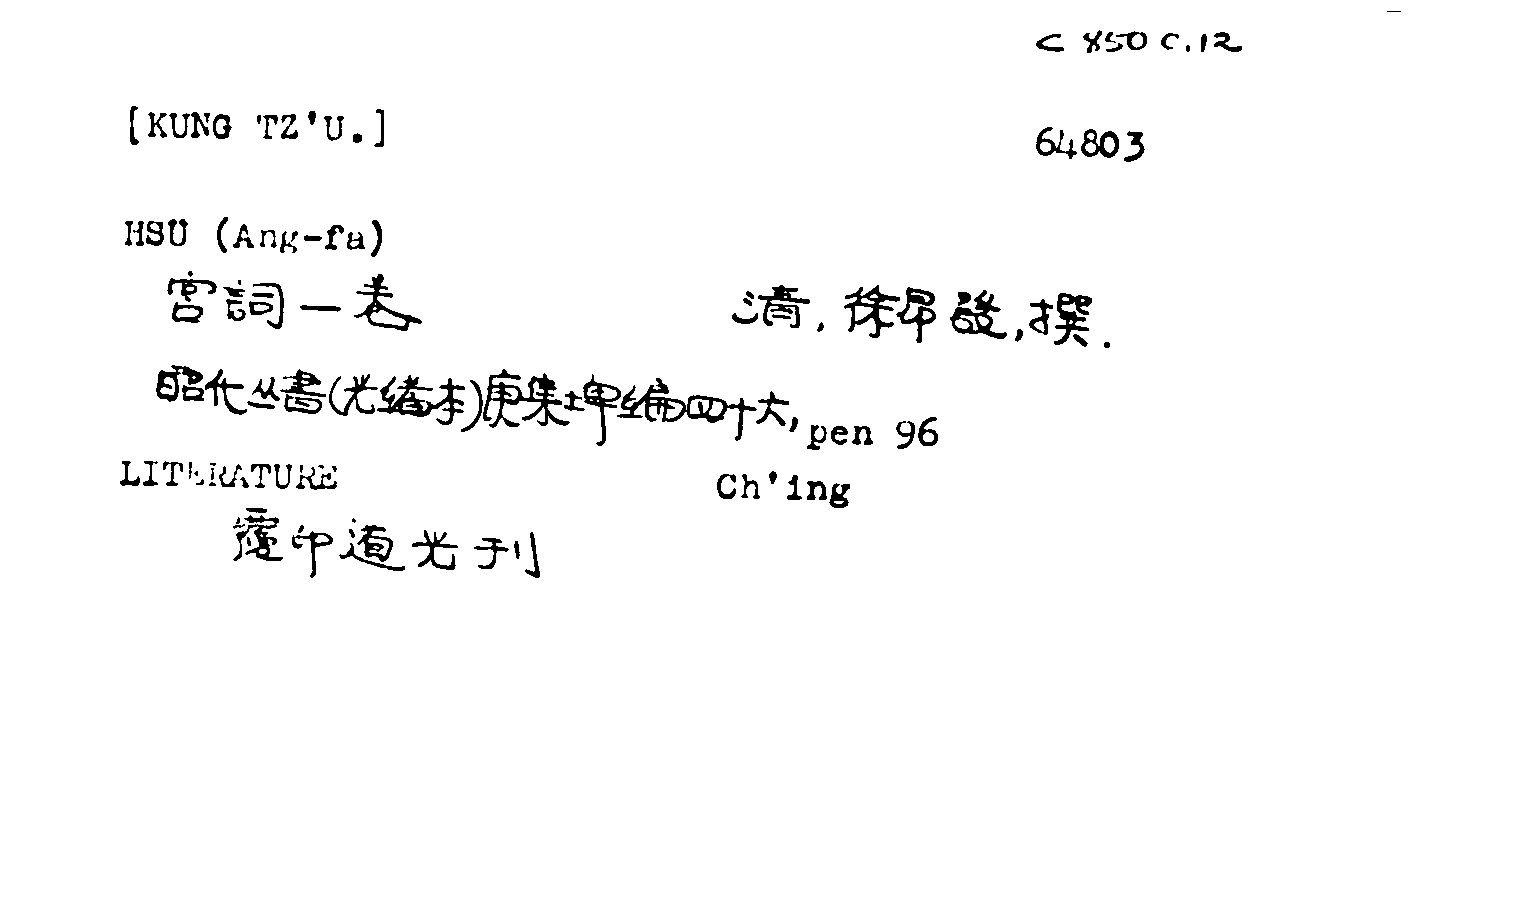 C 850 C.12
[KUNG TZ'U.]
64803
HSÜ (Ang-fa)
宮詞一卷
清, 徐昂發, 撰.
昭代丛書(光緒本)庚集埤編四十六, pen 96
LITERATURE Ch'ing
覆印道光刊